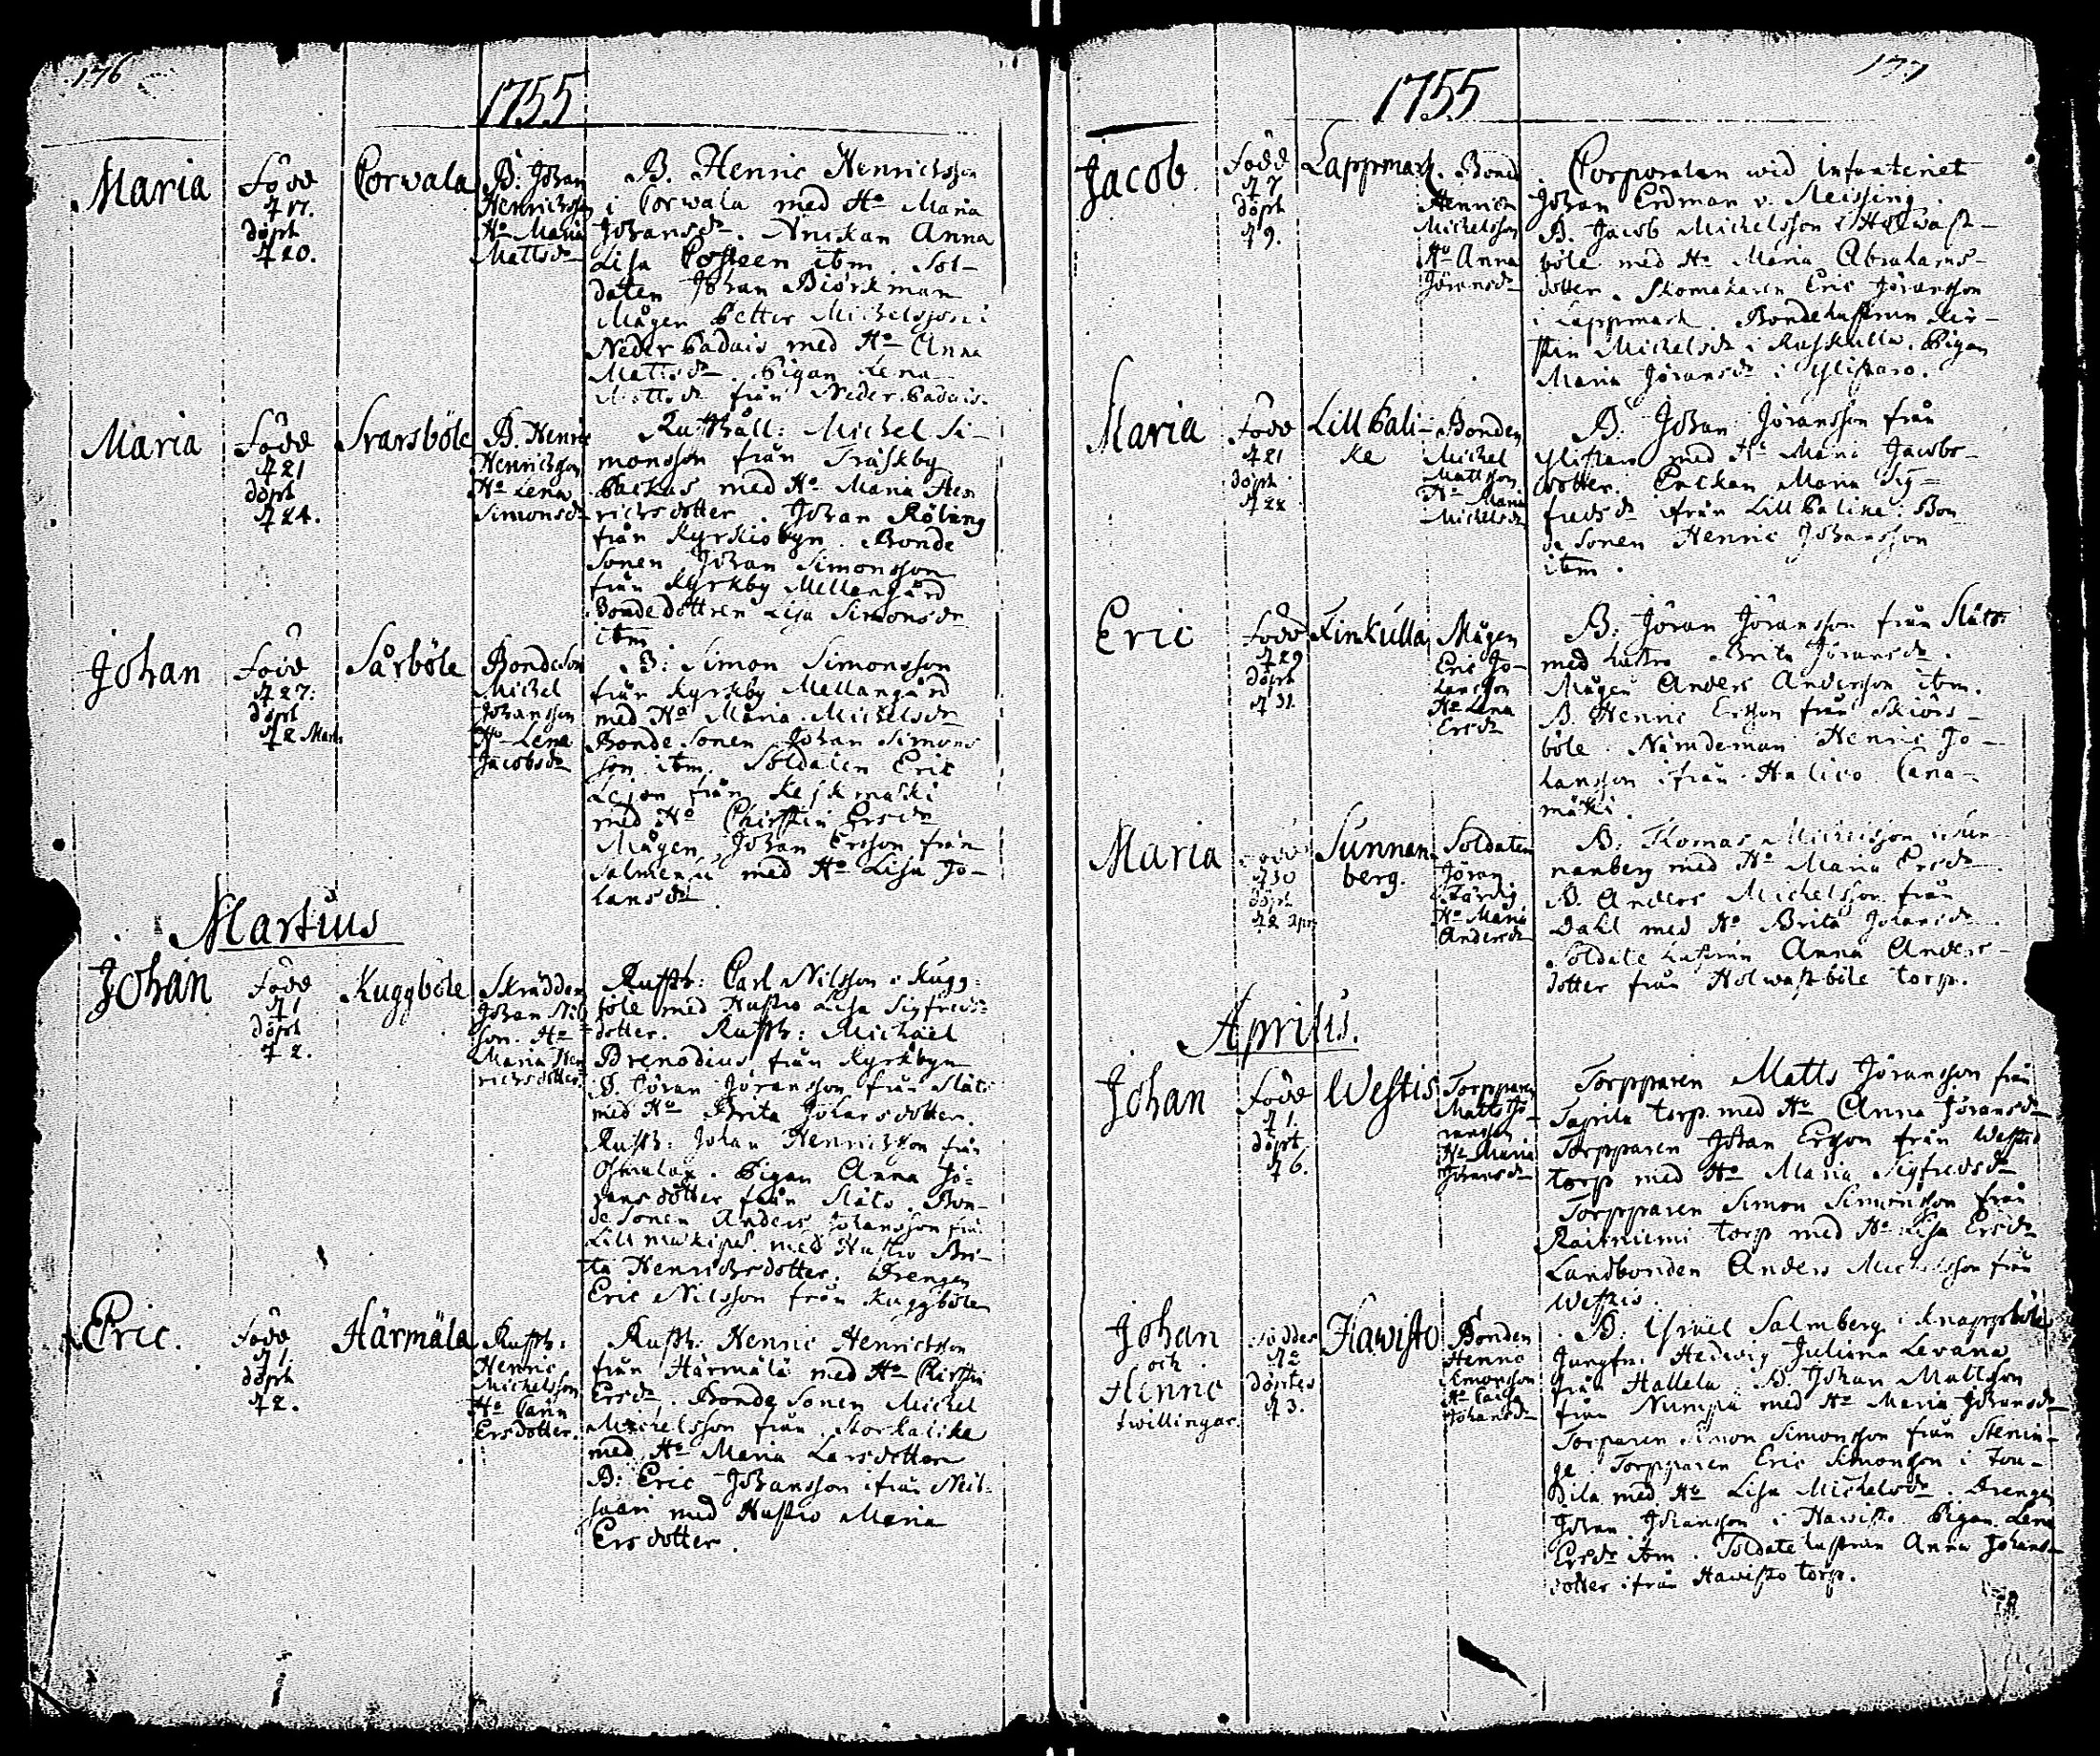 176
1755
Maria
Född
d 17.
döpt
d 20.
Corwala
B. Johan
Henrichsson
Ho Maria
Mattsdr
B. Henric Henrichsson
i Corwala med Ho Maria
Johansdr. Änckan Anna
Lisa Posteen ibm. Sol-
daten Johan Biörkman
Mågen Petter Michelsson i
Neder Badais med Ho Anna
Mattsdr. Pigan Lena
Mattsdr från Neder Badais.
Maria
Född
d 21
döpt
d 24.
Svarsböle
B. Henric
Henrichsson
Ho Lena
Simonsdr
Rusthåll: Michel Si-
monsson från Träskby
Backas med Ho Maria Hen
richsdotter. Johan Röling
från Kyrkiobyn. Bonde
Sonen Johan Simonsson
från Kyrkby Mellangård
Bondedottren Lisa Simonsdr
ibm
Johan
Född
d 27.
döpt
d 2 Marti
Sårböle
BondeSon
Michel
Johansson
Ho Lena
Jacobsdr
B: Simon Simonsson
från Kyrkby Mellangård
med Ho Maria Michelsdr
Bonde Sonen Johan Simons
son ibm. Soldaten Eric
Lejon från Keskmaski
med Ho Chirstin Ersdr
Mågen Johan Ersson från
Salmenu med Ho Lisa Jo-
hansdr.
Martius
Johan
Född
d 1
döpt
d 2.
Kuggböle
Skrädden
Johan Nils
son. Ho
Maria Hen
richsdotter
Rusth: Carl Nilsson i Kugg-
böle med Hustro Lisa Sigfreds-
dotter. Rusth: Michael
Brenodius från Kyrkbyn
B. Jöran Jöransson från Släts
med Ho Brita Johansdotter.
Rusth: Johan Henrichsson från
Ostnalax. Pigan Anna Jö-
ransdotter från Släts. Bon-
de Sonen Anders Johansson från
Lill maskipet. med Hustro Bri-
ta Henrichsdotter. Drengen
Eric Nilsson från Kuggböle
Eric.
Född
d 1
döpt
d 2.
Härmäla
Rusth:
Henric
Michelsson
Ho Carin
Ersdotter.
Rusth: Henric Henrichsson
från Härmälä med Ho Kirstin
Ersdr. Bonde Sonen Michel
Michelsson från Storkalike
med Ho Maria Larsdotter
B: Eric Johansson ifrån Nil-
saari med Hustro Maria
Ersdotter.
177
1755
Jacob
Född
d 7
döpt
d 9.
Lappmark.
Bond
Henrich
Michelsson
Ho Anna
Jöransdr
Corporalen wid Infanteriet
Johan Erdman v. Meissing.
B. Jacob Michelsson i Holwast-
böle med Ho Maria Abrahams-
dotter. Skomakaren Eric Jöransson
i Lappmark. Bondehustrun Kir-
stin Michelsdr i Ruskulla. Pigan
Maria Jöransdr i Ylistaro.
Maria
Född
d 21
döpt
d 22
Lill Pali-
ke
Bonden
Michel
Mattsson
Ho Maria
Michelsdr
B. Johan Jöransson från
Ylistaro med Ho Maria Jacobs-
dotter. Enckan Maria Sig-
fredsdr ifrån Lill Palike. Bon
de Sonen Henric Johansson
ibm.
Eric
Född
d 29
döpt
d 31.
Finkulla
Mågen
Eric Jo-
hansson
Ho Lena
Ersdr
B. Jöran Jöransson från Släts
med hustro Brita Jöransdr.
Mågen Anders Andersson ibm.
B. Henric Ersson från Skiörs-
böle. Nämdeman Henric Jo-
hansson ifrån Halico Cana-
mäki.
Maria
Född
d 30
döpt
d 2 Apr
Sunnan-
berg.
Soldaten
Jöran
Färdig
Ho Maria
Andersdr
B. Thomas Michelsson i Sun
nanberg med Ho Maria Ersdr
B. Anders Michelsson från
Dahl med Ho Brita Johansdr.
Soldate hustrun Anna Anders-
dotter från Holwastböle torp.
Aprilis.
Johan
Född
d 1.
döpt
d 6.
Westis
Torpparen
Matts Jö-
ransson
Ho Maria
Johansdr
Torpparen Matts Jöransson från
Taprila torp med Ho Anna Jöransdr
Torpparen Johan Ersson från Westis
torp med Ho Maria Sigfredsdr
Torpparen Simon Simonsson från
Rainiemi torp med Ho Lisa Ersdr
Landbonden Anders Michelsson från
Westis.
Johan
och
Henric
twillingar.
Födder
d 2
döptes
d 3.
Hawisto
Bonden
Henric
Simonsson
Ho Caisa
Johansdr
B: Israel Salmberg i Knappböle
Jungfru Hedwig Juliana Levana
från Hallela. B. Johan Mattsson
från Numpä med Ho Maria Johansdr
Torparen Simon Simonsson från Stenin-
ge. Torpparen Eric Simonsson i Tou-
dila med Ho Lisa Michelsdr. Drengen
Johan Johansson i Hawisto. Pigan Lena
Ersdr ibm. Soldate hustrun Anna Johans-
dotter ifrån Hawisto torp.